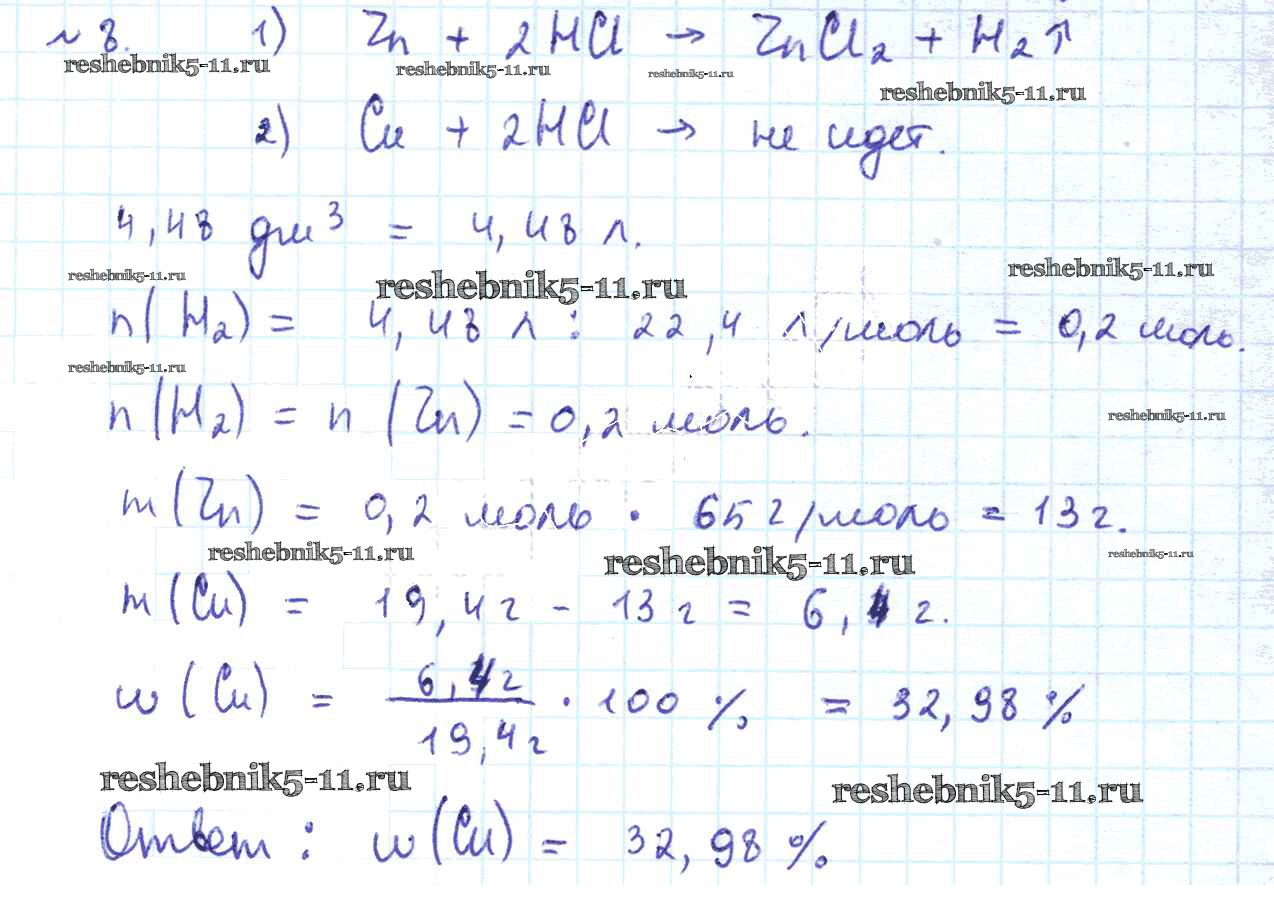 № 8. 1) Zn + 2HCl → ZnCl₂ + H₂↑
reshebnik5-11.ru reshebnik5-11.ru reshebnik5-11.ru reshebnik5-11.ru
2) Cu + 2HCl → не идет.
4,48 дм³ = 4,48 л.
reshebnik5-11.ru reshebnik5-11.ru reshebnik5-11.ru
n(H₂) = 4,48 л : 22,4 л/моль = 0,2 моль.
reshebnik5-11.ru
n(H₂) = n(Zn) = 0,2 моль.
reshebnik5-11.ru
m(Zn) = 0,2 моль · 65 г/моль = 13 г.
reshebnik5-11.ru reshebnik5-11.ru reshebnik5-11.ru
m(Cu) = 19,4 г - 13 г = 6,4 г.
w(Cu) = 6,4 г / 19,4 г · 100 % = 32,98 %
reshebnik5-11.ru reshebnik5-11.ru
Ответ: w(Cu) = 32,98 %